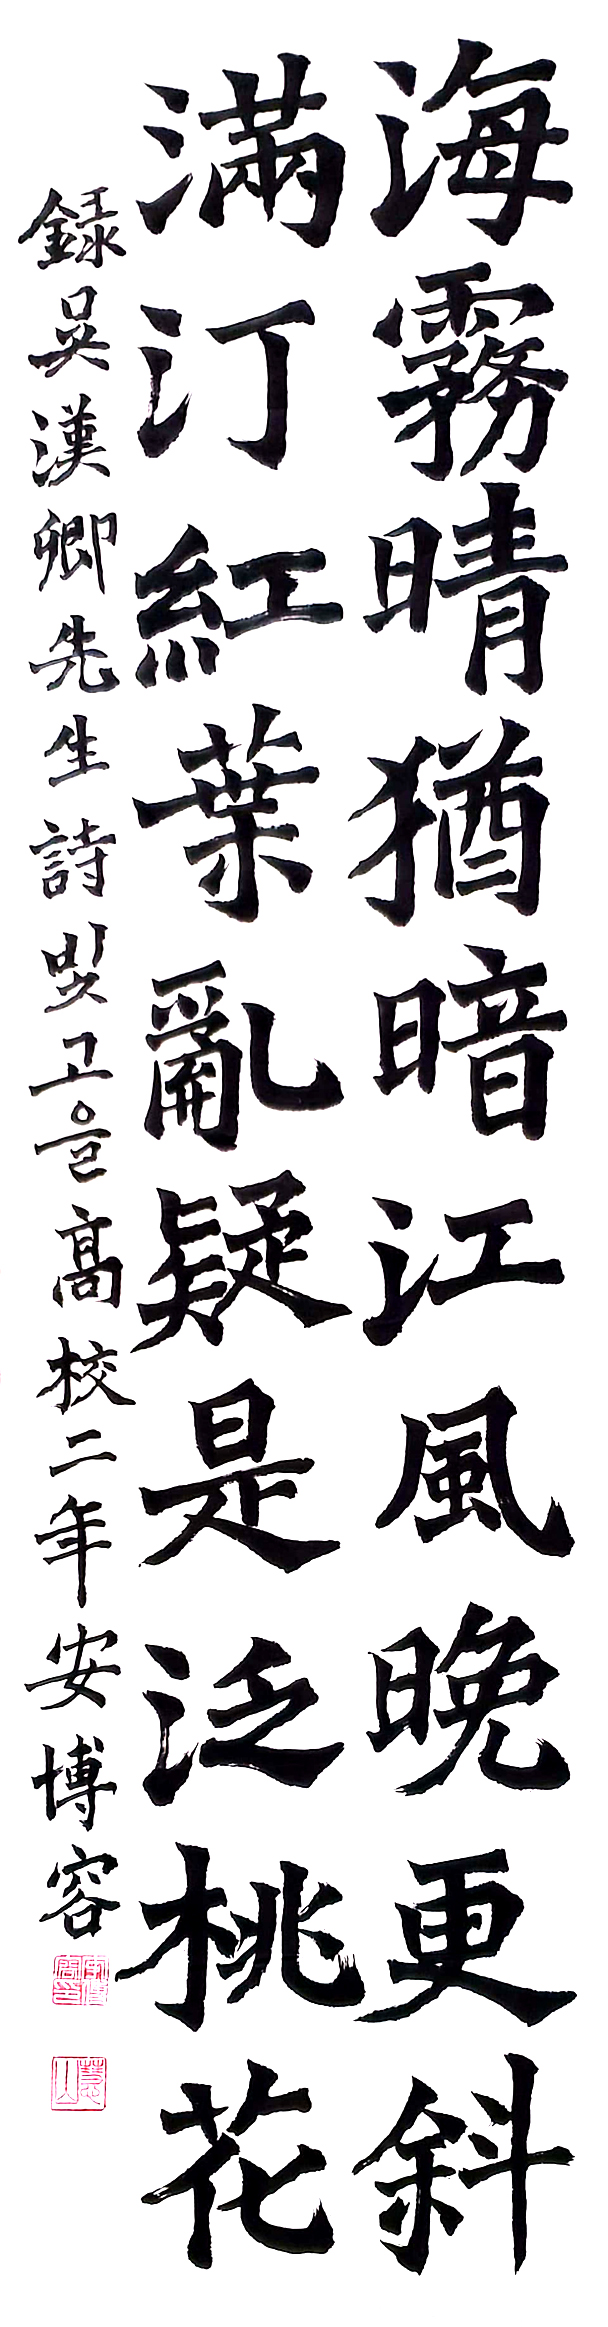 海霧晴猶暗江風晚更斜
滿汀紅葉亂疑是泛桃花
録吳漢卿先生詩 빛고을高校二年安博容